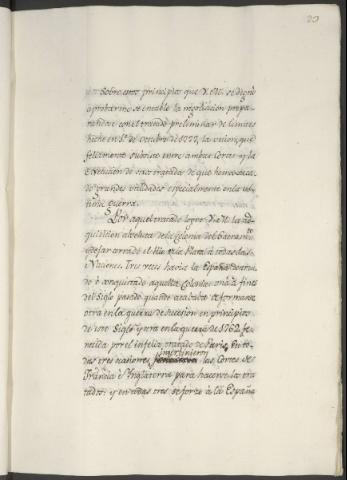 20
Sobre estos principios que V. M. se dignó
aprobarme se entabló la negociacion prepa-
randose con el tratado preliminar de limites
hecho en 1.º de octubre de 1777, la union, que
felizmente subsiste entre ambas Cortes y la
execucion de otros tratados de que hemos saca-
do grandes utilidades especialmente en la ul-
tima guerra.
Por aquel tratado logró V. M. la ad-
quisicion absoluta de la Colonia del Sacram.to
y dejar cerrado el Rio de la Plata a todas las
Naciones. Tres veces havia la España
ò conquistado aquella Colonia: una à fines
del Siglo pasado quando acababa de formarse
otra en la guerra de sucesion en principios
de este Siglo, y otra en la guerra de 1762 fe-
necida por el infeliz tratado de Paris. En to-
das tres naciones intervinieron las Cortes de
Francia è Ynglaterra para hacerse los tra-
tados: y en todas tres se forzó à la España